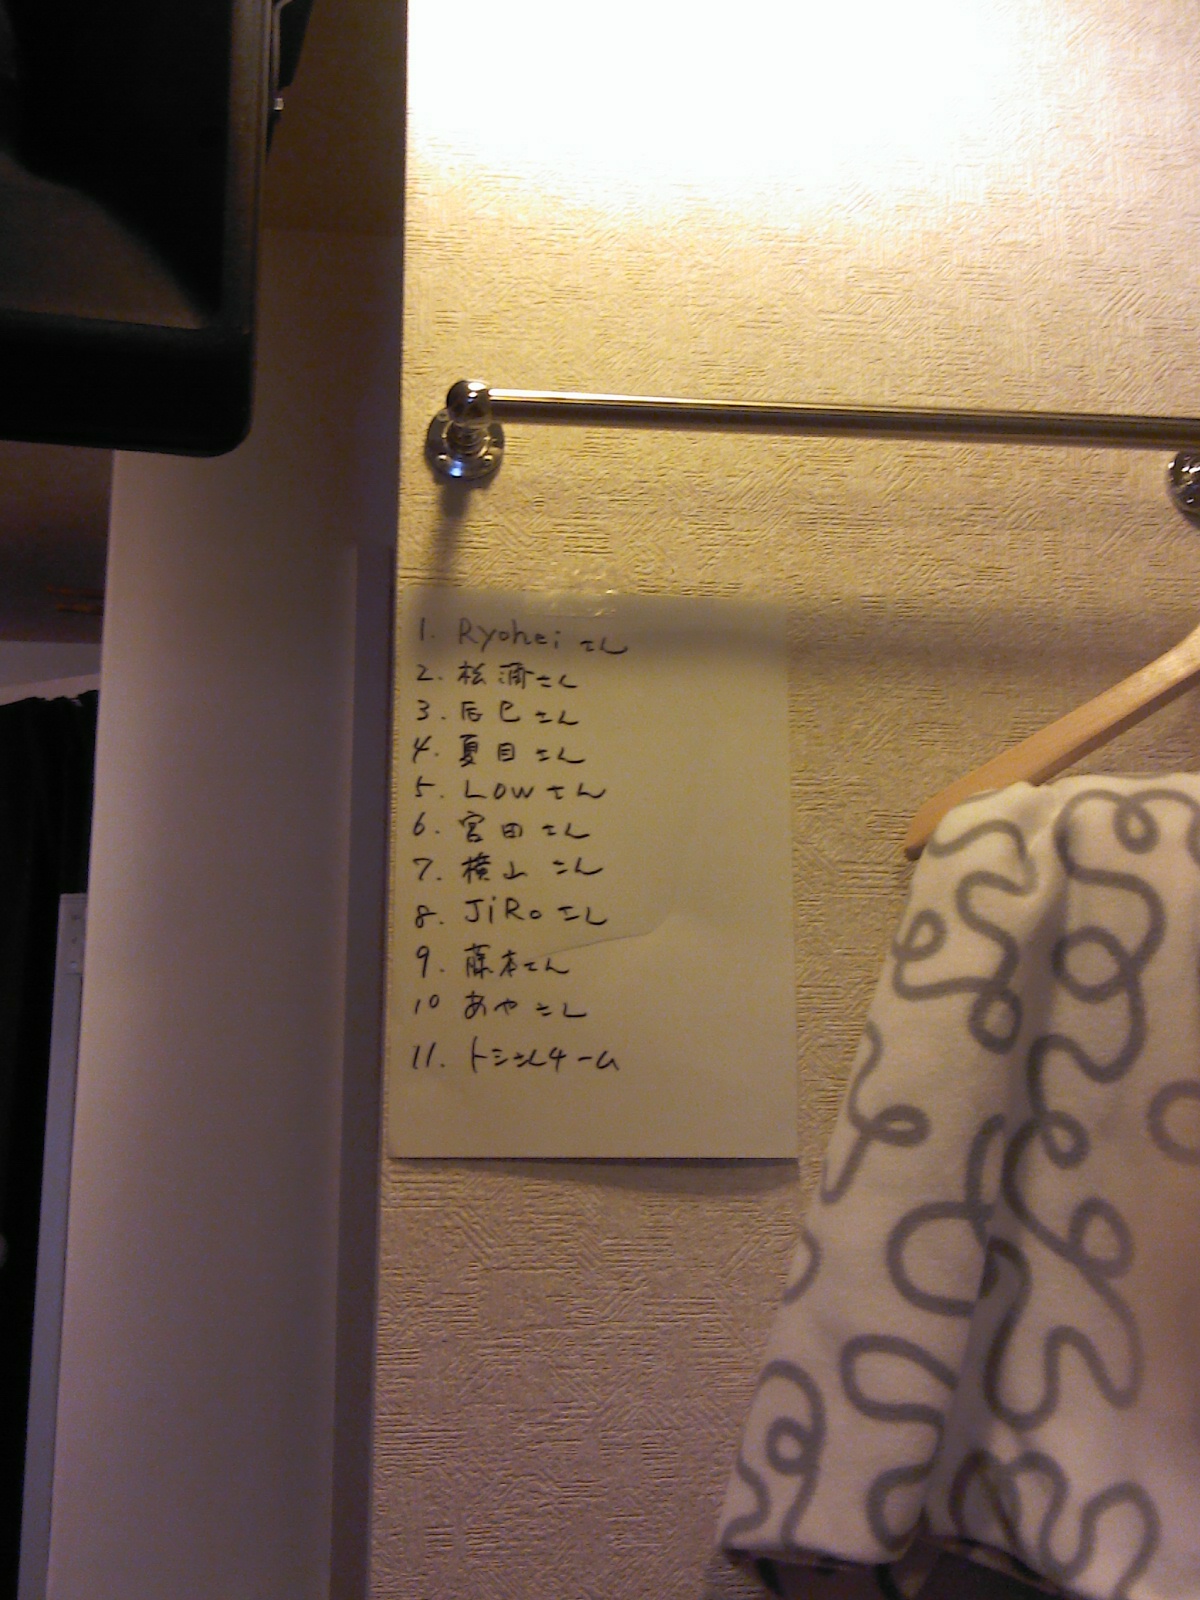 1. Ryohei さん
2. 松浦さん
3. 辰巳さん
4. 夏目さん
5. LOWさん
6. 宮田さん
7. 横山さん
8. JiRoさん
9. 藤本さん
10 あやさん
11. トシさんチーム